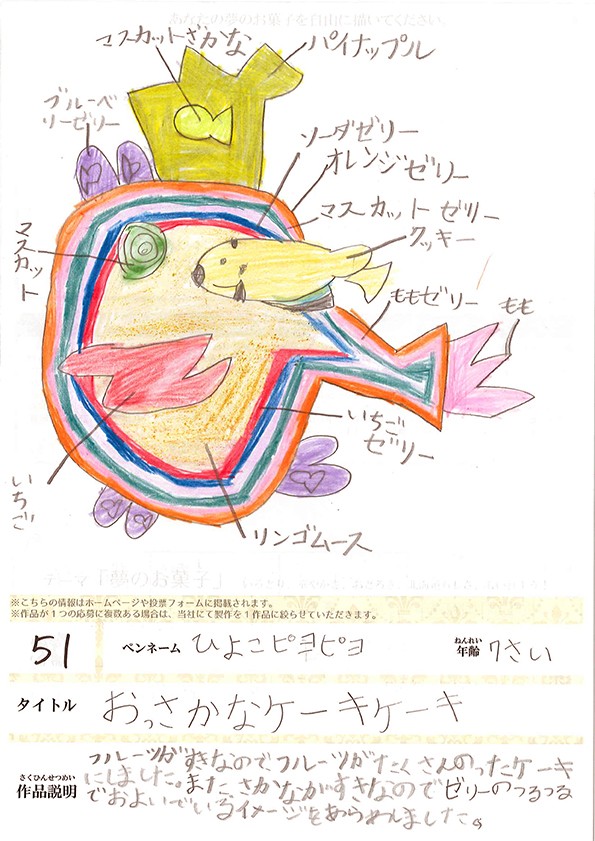 あなたの夢のお菓子を自由に描いてください。
マスカットざかな
パイナップル
ブルーベ
リーゼリー
ソーダゼリー
オレンジゼリー
マスカットゼリー
クッキー
マスカット
ももゼリー
もも
いちご
ゼリー
いちご
リンゴムース
テーマ「夢のお菓子」
※こちらの情報はホームページや投票フォームに掲載されます。
※作品が１つの応募に複数ある場合は、当社にて製作を１作品に絞らせていただきます。
51 ペンネーム ひよこピヨピヨ ねんれい 年齢 7さい
タイトル おっさかなケーキケーキ
さくひんせつめい
作品説明
フルーツがすきなのでフルーツがたくさんのったケーキ
にしました。またさかながすきなのでゼリーのつるつる
でおよいでいるイメージをあらわしました。